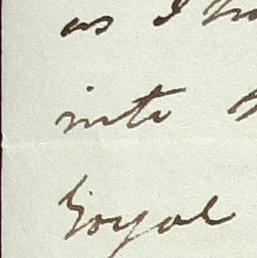 as I
into
Royal